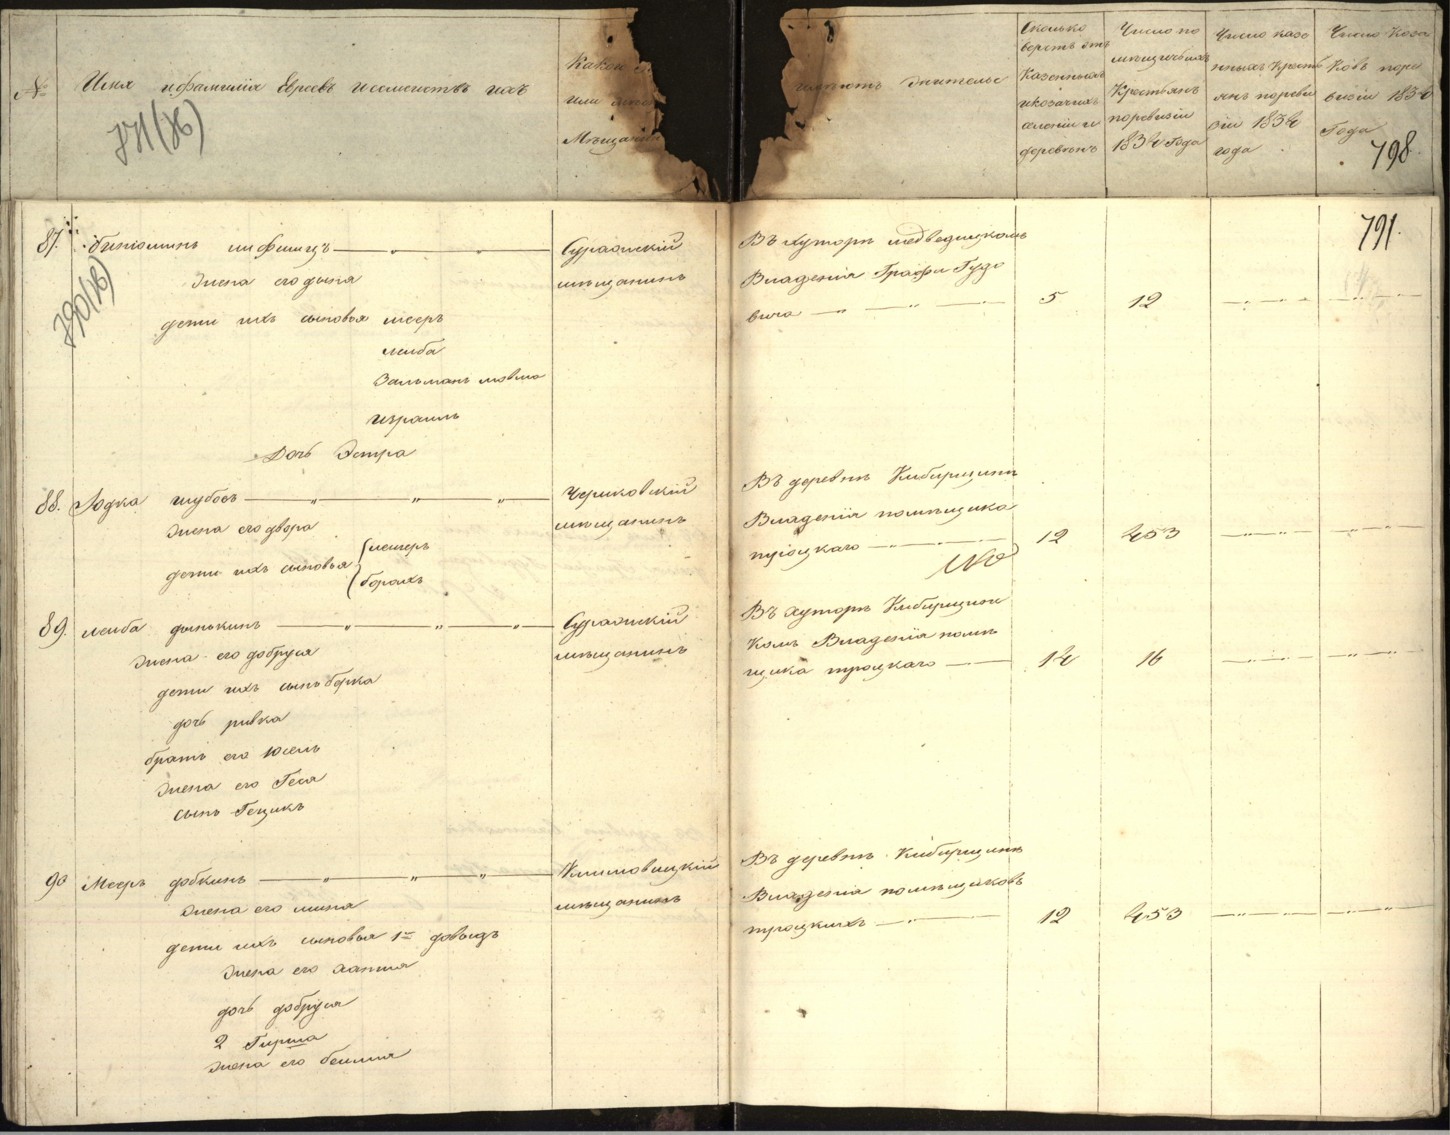 № Имя и фамилія Евреевъ и семействъ ихъ
Какой
или
Мѣщан
имѣютъ жительс
Сколько
верстъ отъ
Казенныхъ
и козачихъ
селеніи и
деревень
Число по
мѣщичьихъ
Крестьянъ
по ревизіи
1834 года
Число казе
нныхъ Кресть
янъ по реви
зіи 1834
года
Число Коза
ковъ по ре
визіи 1834
Года
798.
791.
87.
жена его дына
дети ихъ сыновья мееръ
лейба
Залманъ
израиль
Дочь Эстра
Суражскій
мѣщанинъ
Въ хуторѣ медведицкомъ
Владенія Графа Гудо
вича
5 12
88. Іодка
жена его двора
дети ихъ сыновья
борохъ
Чериковскій
мѣщанинъ
Въ деревнѣ Кибирщинѣ
Владенія помѣщика
троцкаго
12 453
89. лейба дынькинъ
жена его добруся
дети ихъ сынъ борка
дочь ривка
братъ его Юсель
жена его Геся
сынъ Гецикъ
Суражскій
мѣщанинъ
Въ хуторѣ Кибирщин
комъ Владенія помѣ
щика троцкаго
14 16
90 Мееръ добкинъ
жена его мина
дети ихъ сыновья 1й довыдъ
жена его
дочь добруся
2 Гирша
жена его
Климовицкій
мѣщанинъ
Въ деревнѣ Кибирщинѣ
Владенія помѣщиковъ
троцкихъ
12 453